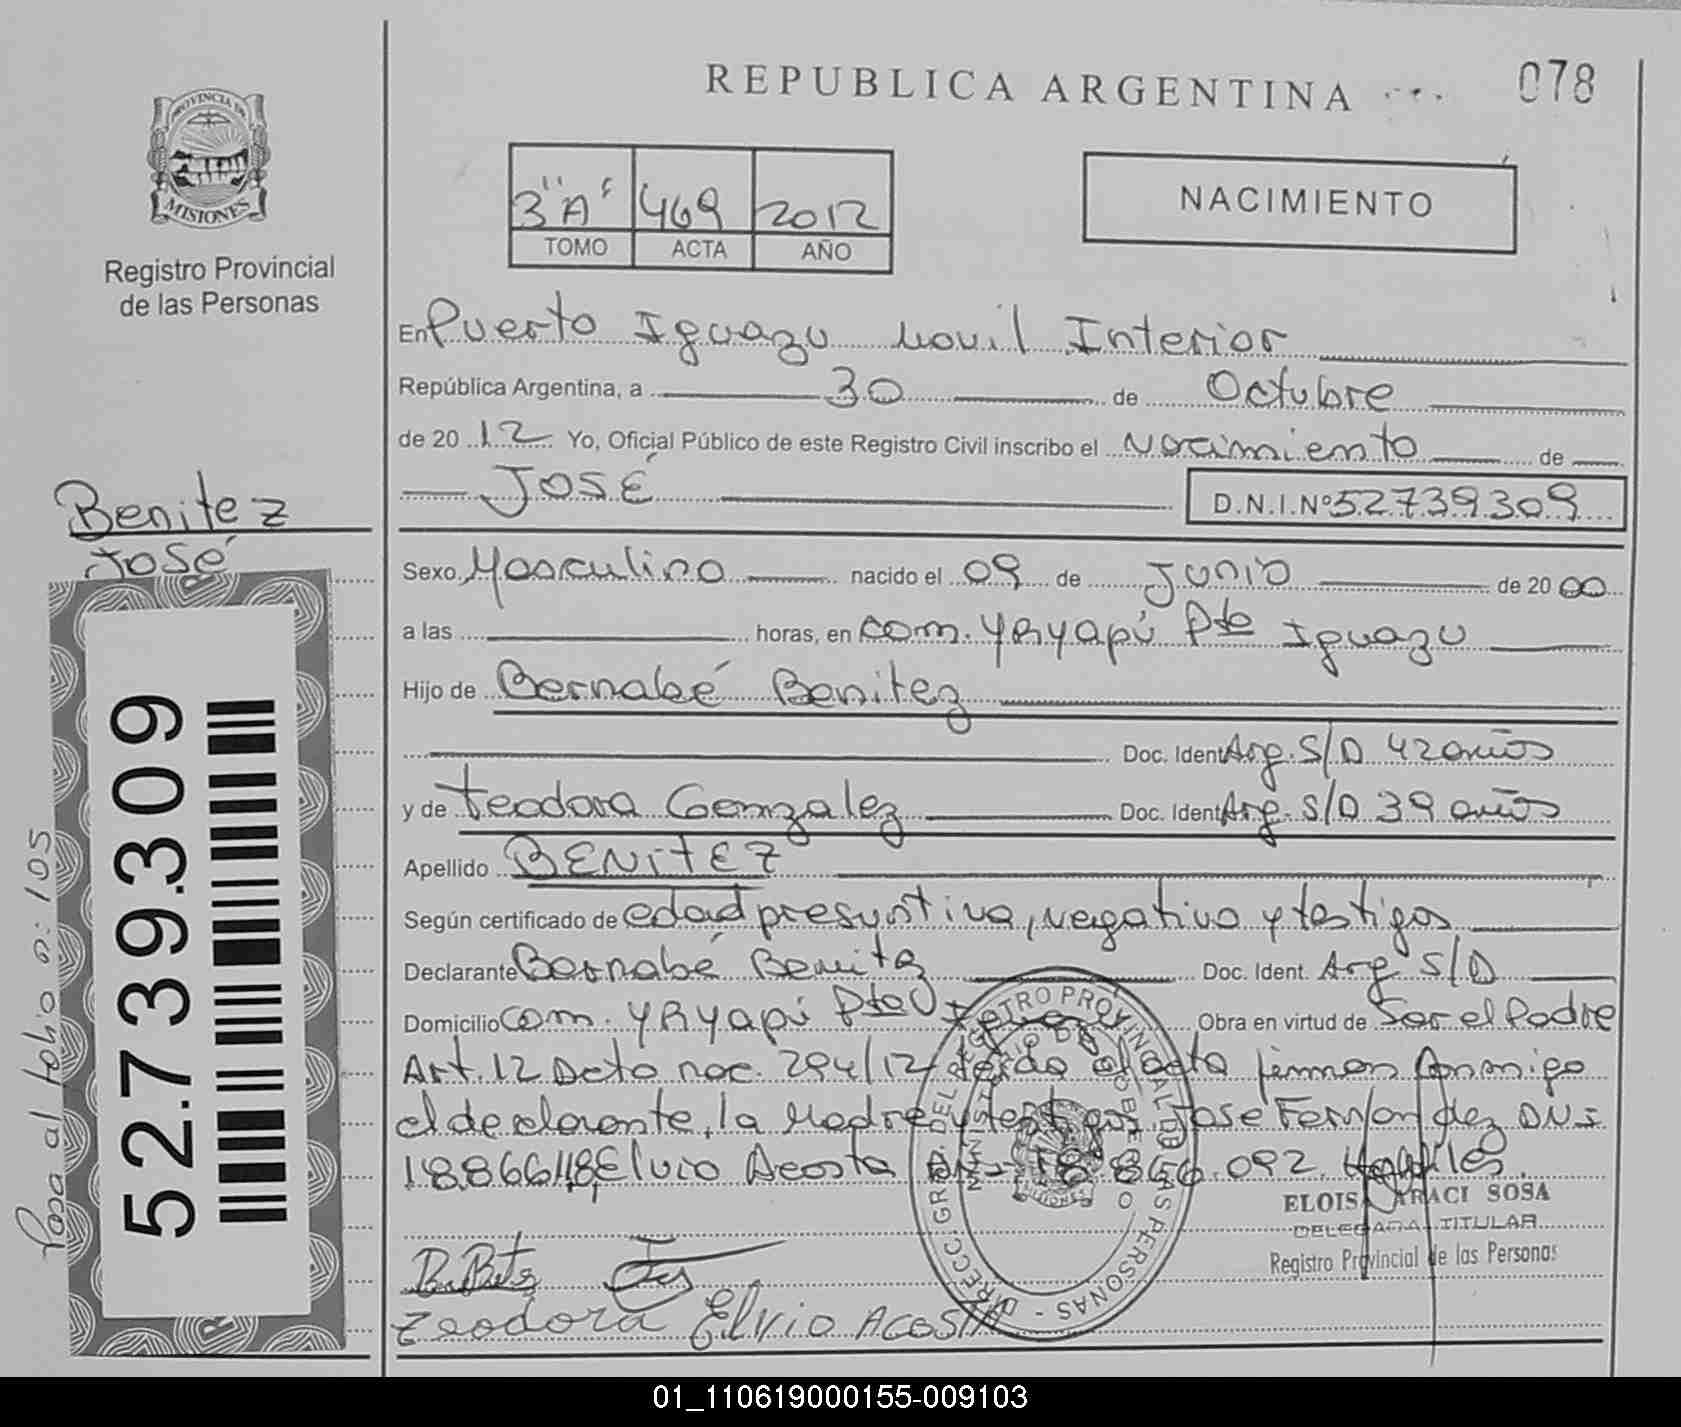 REPUBLICA ARGENTINA
078
PROVINCIA DE
MISIONES
Registro Provincial
de las Personas
3 "A" 469 2012
TOMO ACTA AÑO
NACIMIENTO
En Puerto Iguazu Movil Interior
República Argentina, a 30 de Octubre
de 2012 Yo, Oficial Público de este Registro Civil inscribo el Nacimiento de
JOSÉ D.N.I.Nº 52739309
Benitez
José
Sexo Masculino nacido el 09 de Junio de 2000
a las horas, en Com. YRYapú Pto Iguazu
Hijo de Bernabé Benitez
Doc. Ident Arg. S/D 42 años
y de Teodora Gonzalez Doc. Ident Arg. S/D 39 años
Apellido BENITEZ
Según certificado de edad presuntiva, negativo y testigos
Declarante Bernabé Benitez Doc. Ident. Arg S/D
Domicilio Com. YRYapú Pto Iguazu Obra en virtud de Ser el Padre
Art. 12 Dcto nac. 294/12 leída el acta firman conmigo
el declarante, la Madre y testigos José Fernandez DNI
18866118 Elvio Acosta DNI 18.856.092. Habiles.
ELOISA ARACI SOSA
DELEGADA TITULAR
Registro Provincial de las Personas
Teodora Elvio ACOSTA
52.739.309
Pasa al folio nº: 105
01_110619000155-009103